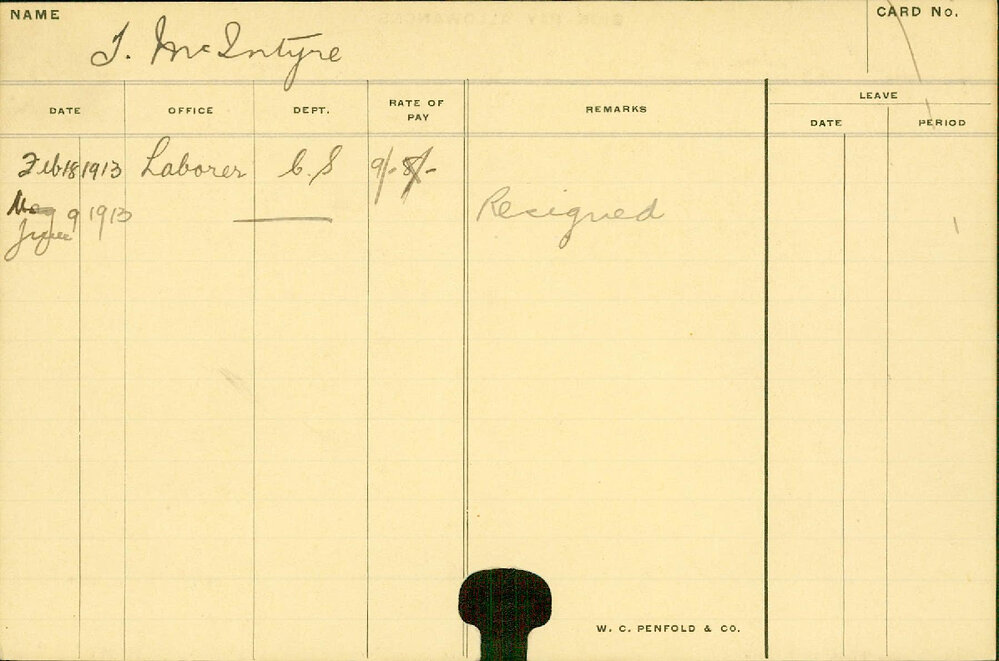 NAME
CARD No.
J. McIntyre
DATE OFFICE DEPT. RATE OF PAY REMARKS LEAVE
DATE PERIOD
Feb 18 1913 Laborer C.S 9/- 8/-
May 9 1913 Resigned
June
W. C. PENFOLD & CO.